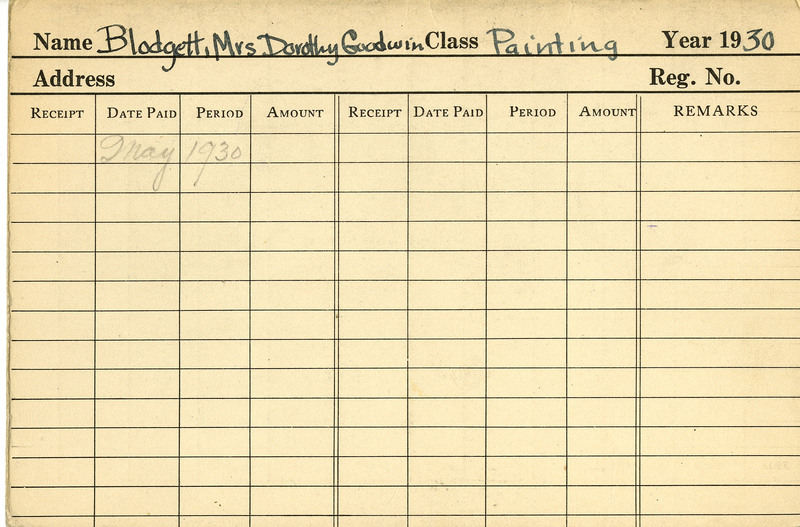 Name Blodgett, Mrs Dorothy Goodwin Class Painting Year 1930
Address Reg. No.
RECEIPT DATE PAID PERIOD AMOUNT RECEIPT DATE PAID PERIOD AMOUNT REMARKS
May 1930